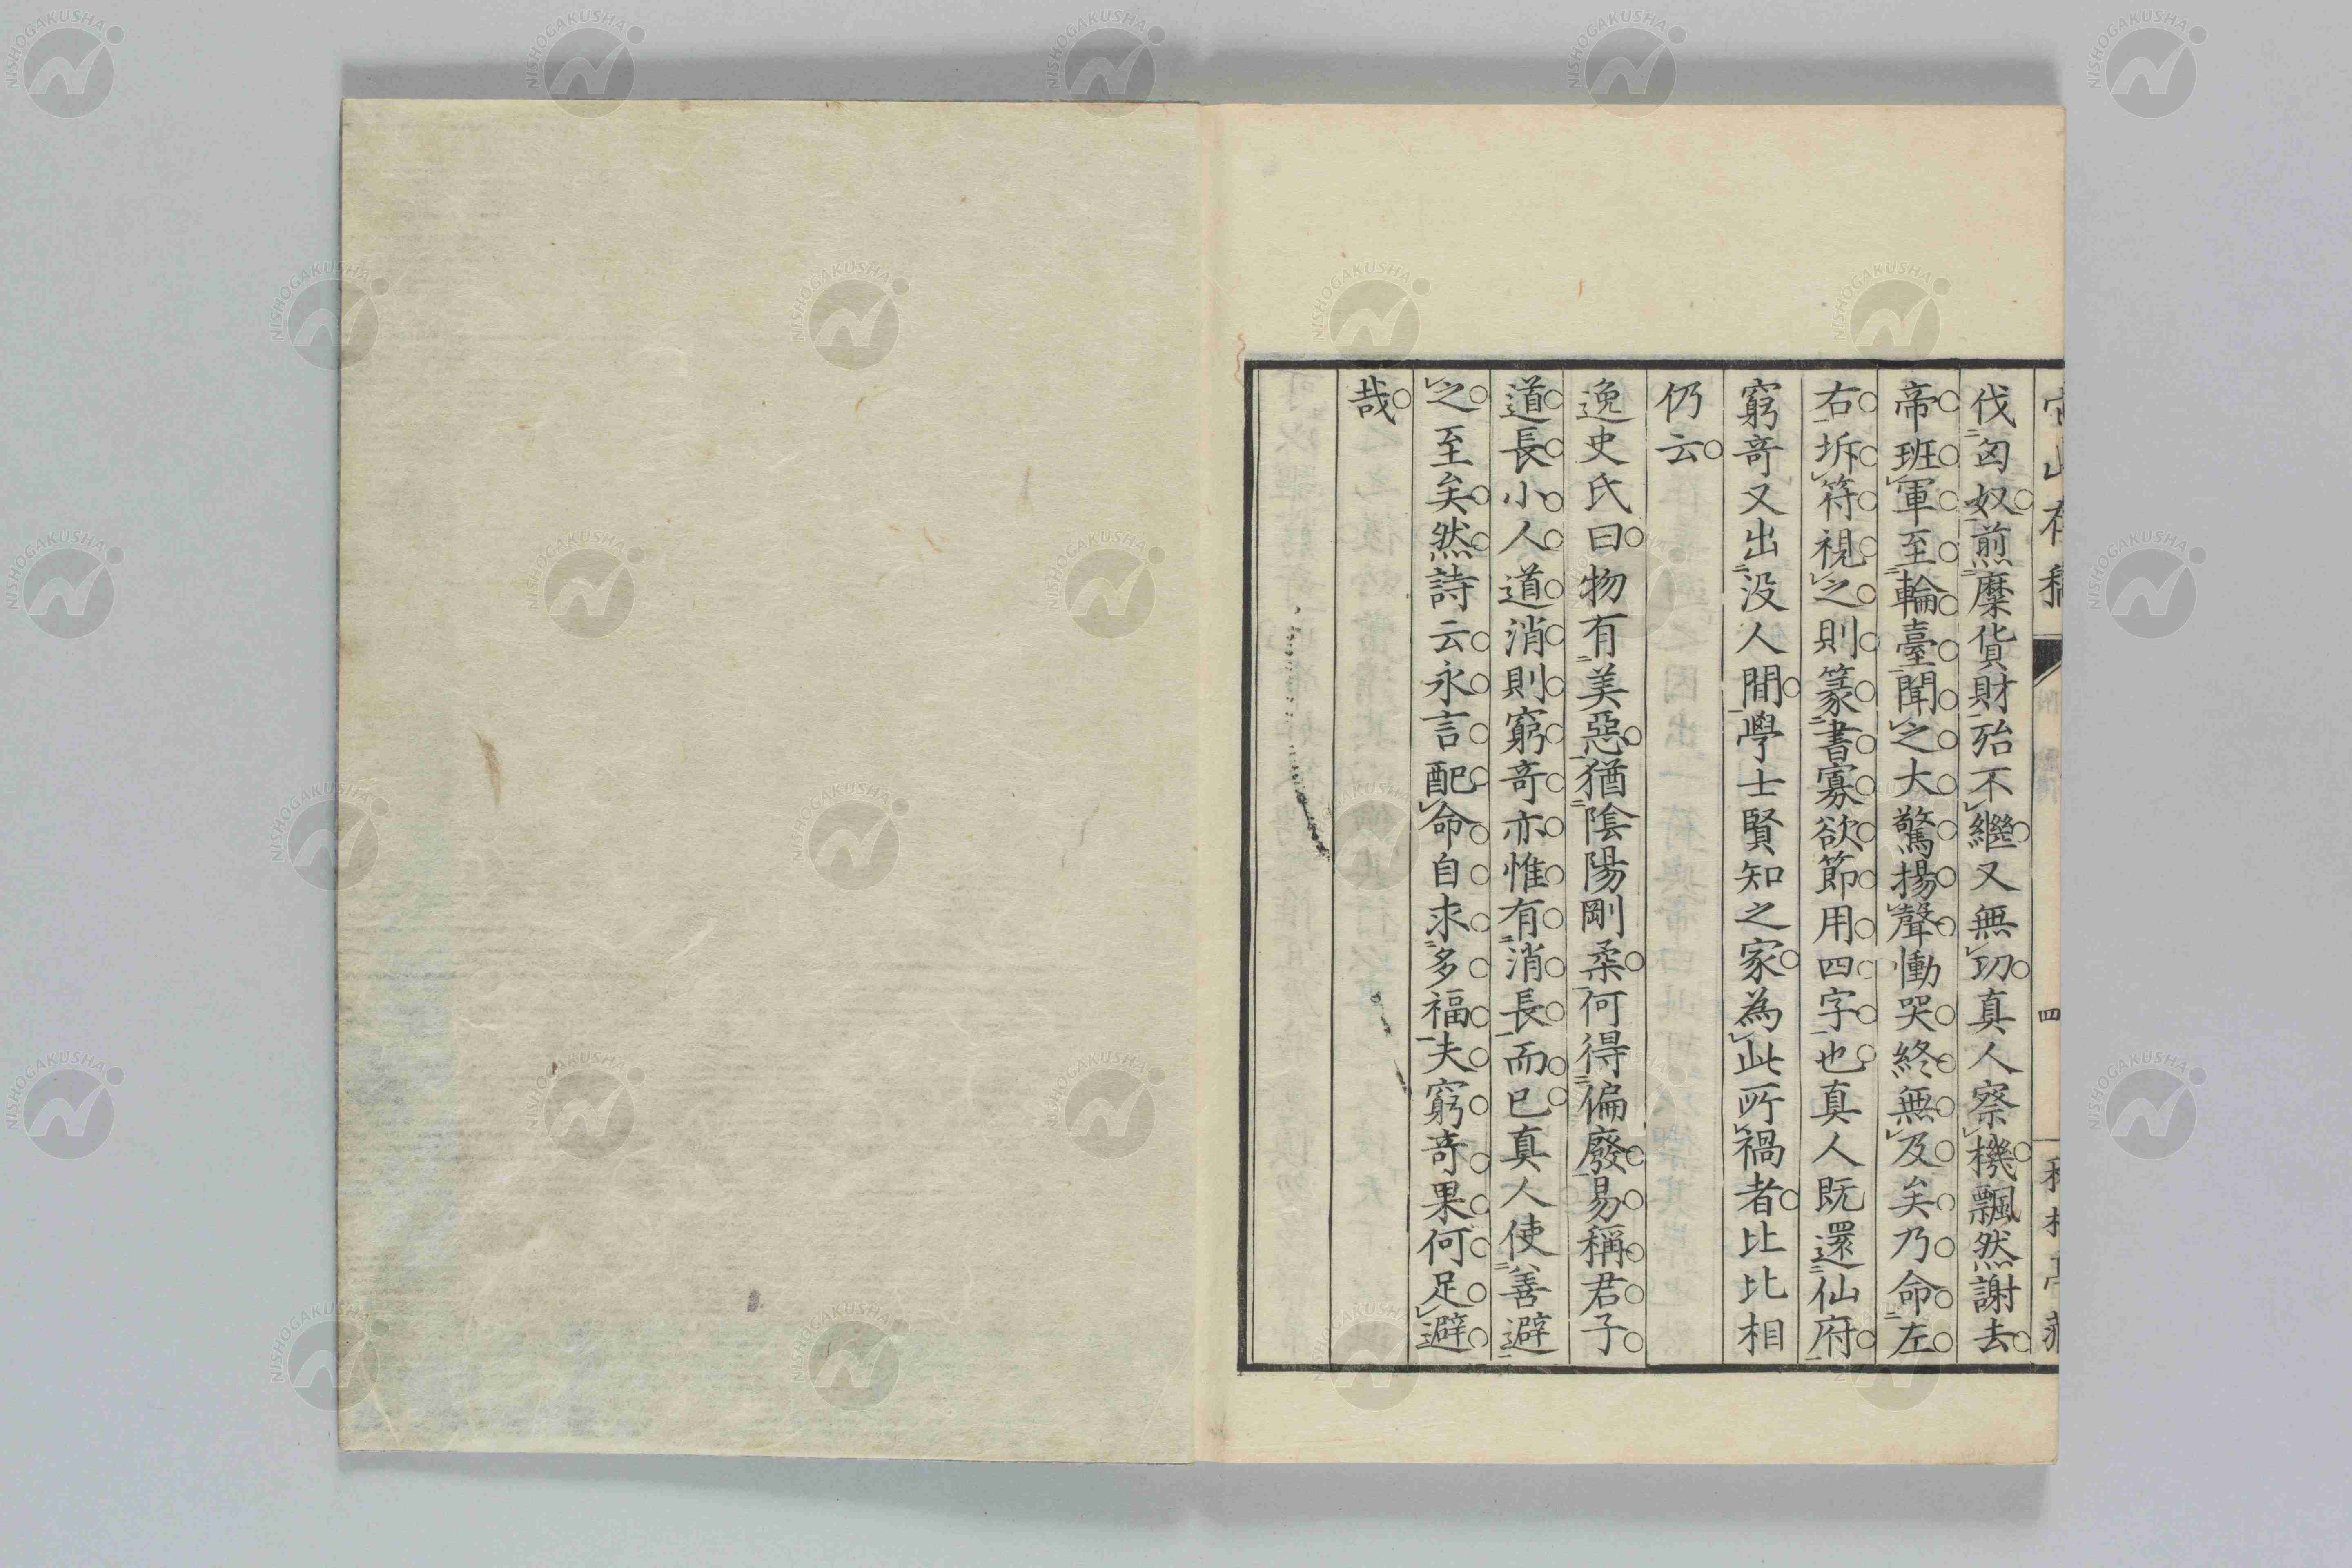 伐匈奴煎糜貨財殆不繼又無功真人察機飄然謝去
帝班軍至輪臺聞之大驚揚聲慟哭終無及矣乃命左
右坼符視之則篆書寡欲節用四字也真人既還仙府
窮奇又出没人間學士賢知之家為此所禍者比比相
仍云
逸史氏曰物有美惡猶陰陽剛柔何得偏廢易稱君子
道長小人道消則窮奇亦惟有消長而已真人使善避
之至矣然詩云永言配命自求多福夫窮奇果何足避
哉
四
NISHOGAKUSHA